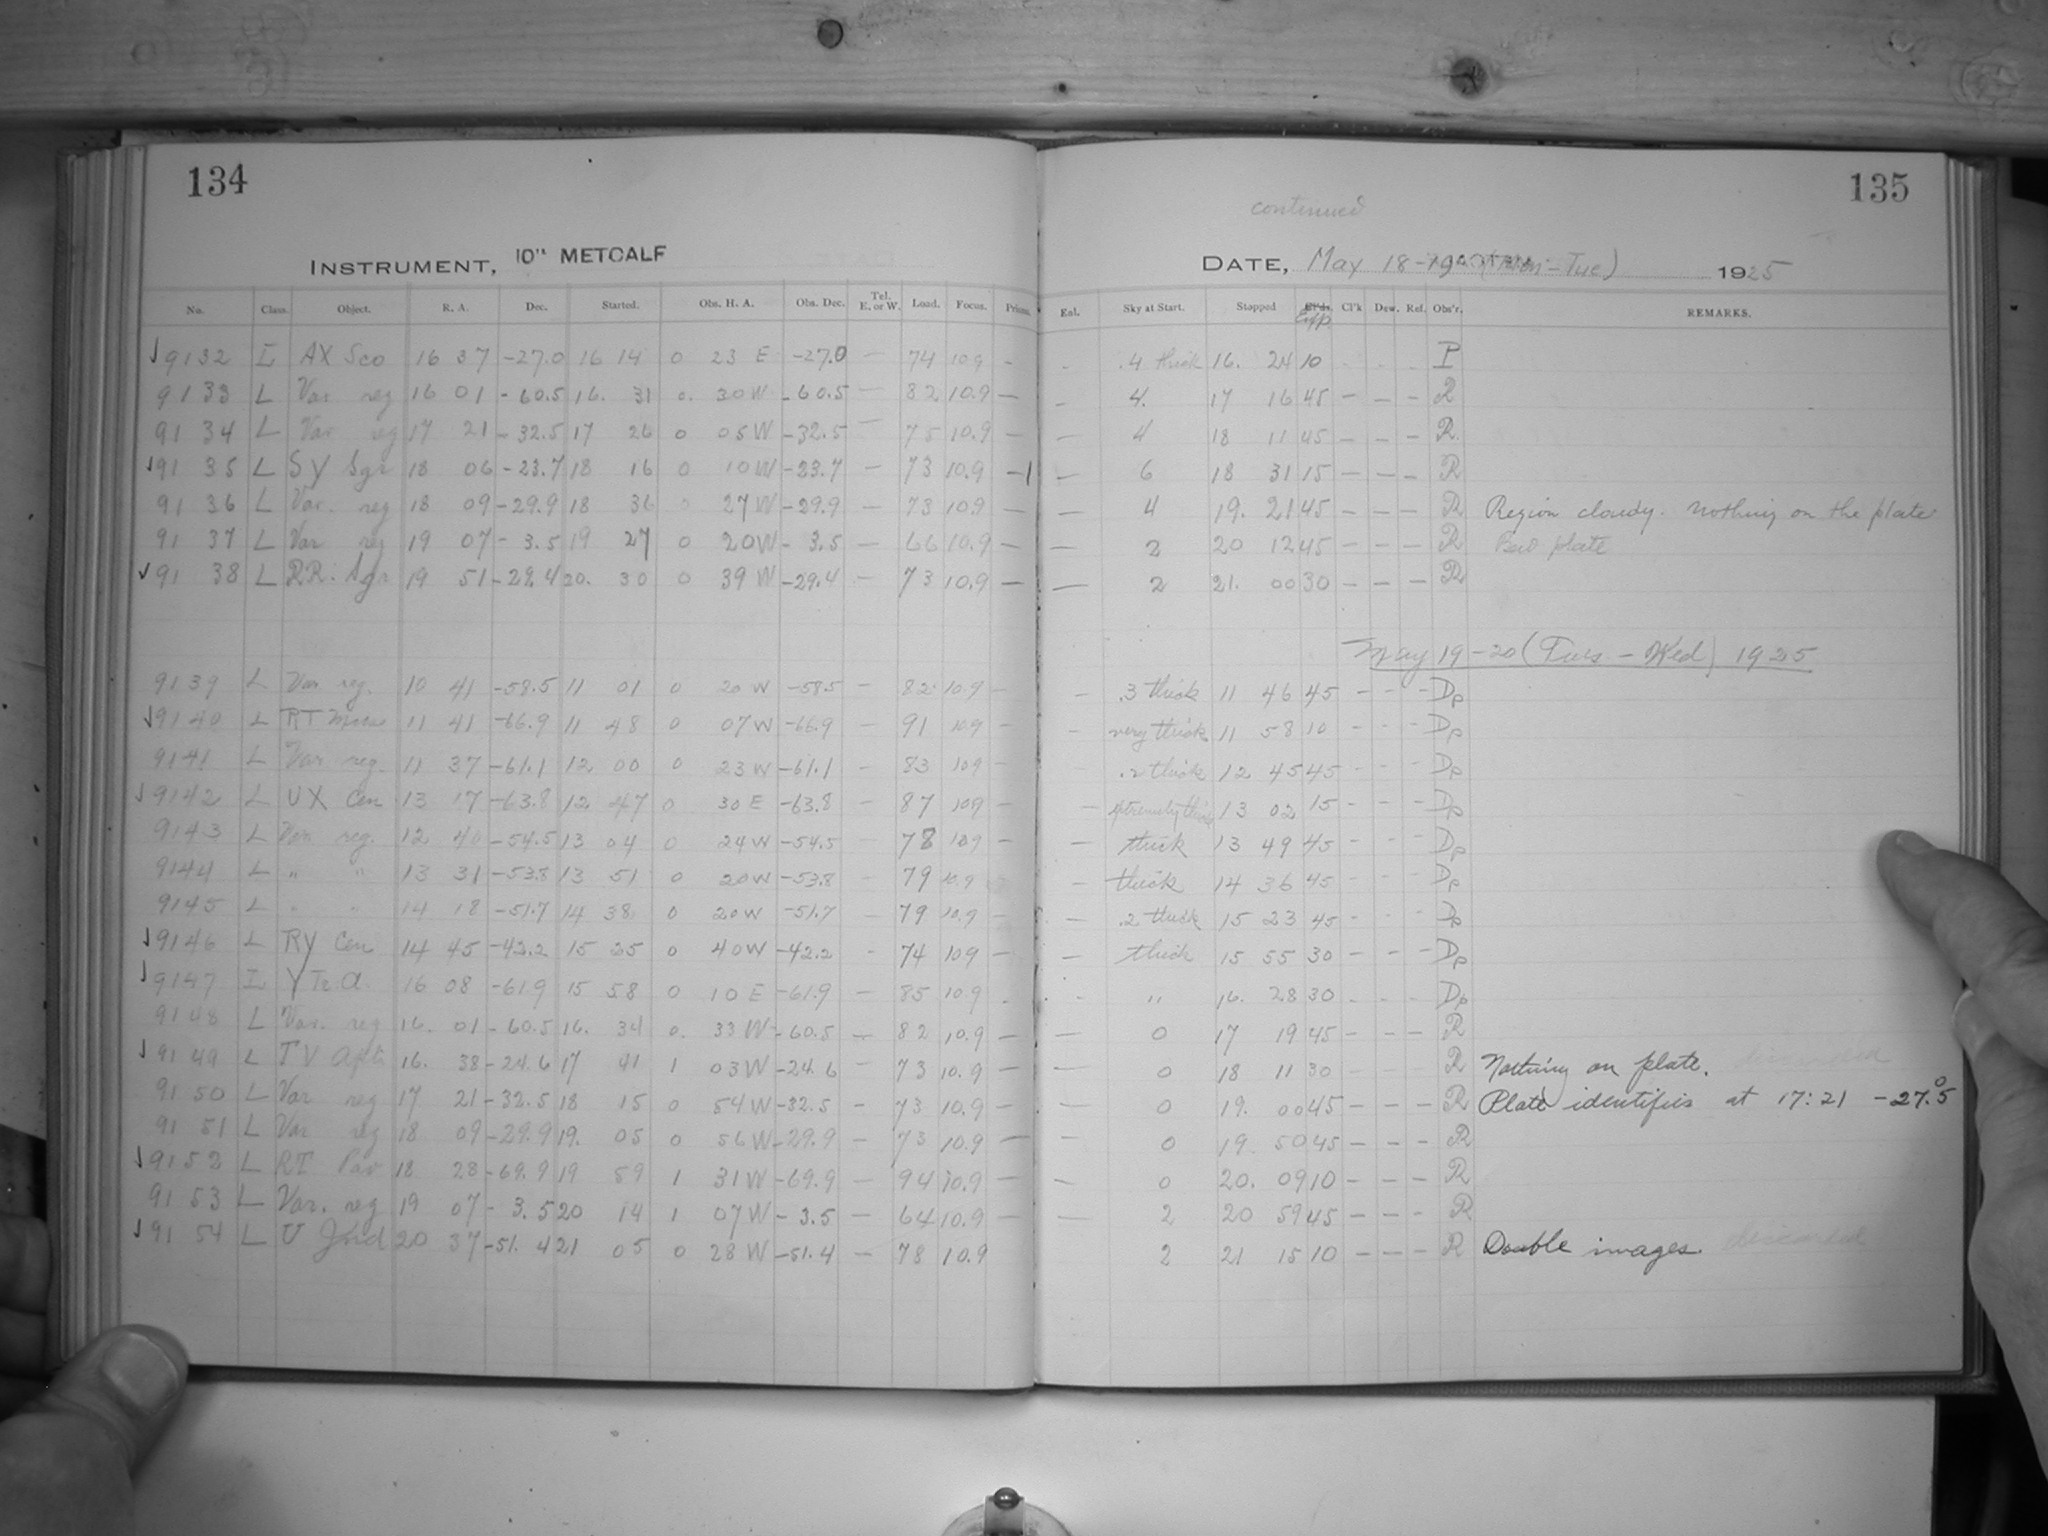 134
135
continued
INSTRUMENT, 10" METCALF
DATE, May 18-19 (Mon-Tue) 1925
No. Class. Object. R. A. Dec. Started. Obs. H. A. Obs. Dec. Tel. E. or W. Load. Focus. Prisms. Enl. Sky at Start. Stopped Exp Cl'k Dew. Ref. Obs'r. REMARKS.
√9132 I AX Sco 16 37 -27.0 16 14 0 23 E -27.0 — 74 10.9 - - .4 thick 16. 24 10 - - - P
9133 L Var reg 16 01 -60.5 16. 31 0. 30 W -60.5 — 82 10.9 — — 4. 17 16 45 — — — R
9134 L Var reg 17 21 -32.5 17 26 0 05 W -32.5 — 75 10.9 — — 4 18 11 45 — — — R.
√9135 L SY Sgr 18 06 -23.7 18 16 0 10 W -23.7 — 73 10.9 -1 — 6 18 31 15 — — — R
9136 L Var. reg 18 09 -29.9 18 36 0 27 W -29.9 — 73 10.9 — — 4 19. 21 45 — — — R Region cloudy. nothing on the plate
9137 L Var reg 19 07 -3.5 19 27 0 20 W -3.5 — 66 10.9 — — 2 20 12 45 — — — R Bad plate
√9138 L RR. Sgr 19 51 -29.4 20. 30 0 39 W -29.4 — 73 10.9 — — 2 21. 00 30 — — — R
May 19-20 (Tues - Wed) 1925
9139 L Var reg. 10 41 -58.5 11 01 0 20 W -58.5 — 82 10.9 - - .3 thick 11 46 45 - - - Dp
√9140 L RT Musc 11 41 -66.9 11 48 0 07 W -66.9 - 91 10.9 - - very thick 11 58 10 - - - Dp
9141 L Var reg. 11 37 -61.1 12 00 0 23 W -61.1 - 83 10.9 - - .2 thick 12 45 45 - - - Dp
√9142 L UX Cen 13 17 -63.8 12 47 0 30 E -63.8 - 87 10.9 - - extremely thick 13 02 15 - - - Dp
9143 L Var reg. 12 40 -54.5 13 04 0 24 W -54.5 - 78 10.9 - - thick 13 49 45 - - - Dp
9144 L " " 13 31 -53.8 13 51 0 20 W -53.8 - 79 10.9 - thick 14 36 45 - - - Dp
9145 L " " 14 18 -51.7 14 38 0 20 W -51.7 - 79 10.9 - - .2 thick 15 23 45 - - - Dp
√9146 L RY Cen 14 45 -42.2 15 25 0 40 W -42.2 - 74 10.9 - - thick 15 55 30 - - - Dp
√9147 I Y Tr.A. 16 08 -61.9 15 58 0 10 E -61.9 - 85 10.9 - - " 16. 28 30 - - - Dp
9148 L Var. reg 16. 01 -60.5 16. 34 0. 33 W -60.5 — 82 10.9 — — 0 17 19 45 — — — R
√9149 L TV 16. 38 -24.6 17 41 1 03 W -24.6 — 73 10.9 — — 0 18 11 30 — — — R Nothing on plate. discarded
9150 L Var reg 17 21 -32.5 18 15 0 54 W -32.5 — 73 10.9 — — 0 19. 00 45 — — — R Plate identifies at 17:21 -27.°5
9151 L Var reg 18 09 -29.9 19. 05 0 56 W -29.9 — 73 10.9 — — 0 19. 50 45 — — — R
√9152 L RT Pav 18 28 -69.9 19 59 1 31 W -69.9 — 94 10.9 — — 0 20. 09 10 — — — R
9153 L Var. reg 19 07 -3.5 20 14 1 07 W -3.5 — 64 10.9 — — 2 20 59 45 — — - R
√9154 L U Ind 20 37 -51.4 21 05 0 28 W -51.4 — 78 10.9 2 21 15 10 — — — R Double images. discarded